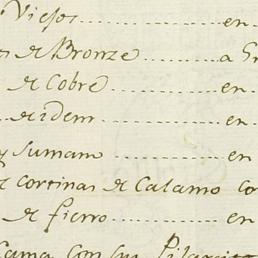 Viejos ........ en
de Bronze ........ a
de Cobre ........ en
de idem ........ en
y sumam ........ en
cortinas de Calamo co
de fierro ........ en
Cama con su Pilarcito